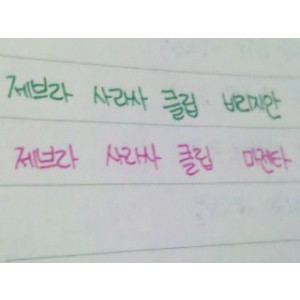 제브라 사라사 클립 비리지안
제브라 사라사 클립 마젠타